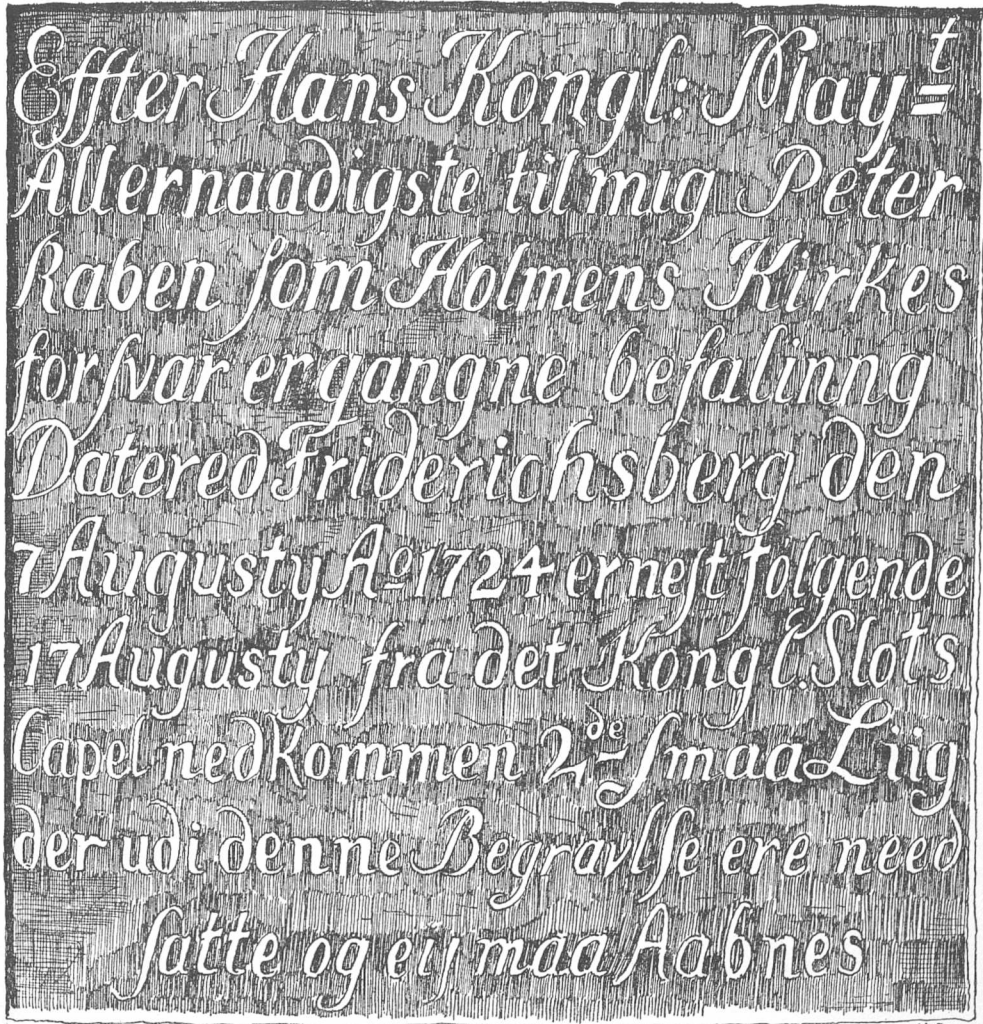 Effter Hans Kongl: May=ᵗ
Allernaadigste til mig Peter
Raben ſom Holmens Kirkes
forſvar ergangne befalinng
Datered Friderichsberg den
7 Augusty Aº 1724 er neſt folgende
17 Augusty fra det Kongl. Slots
Capel nedkommen 2ᵈᵉ ſmaa Liig
der udi denne Begravlſe ere need
ſatte og eij maa Aabnes